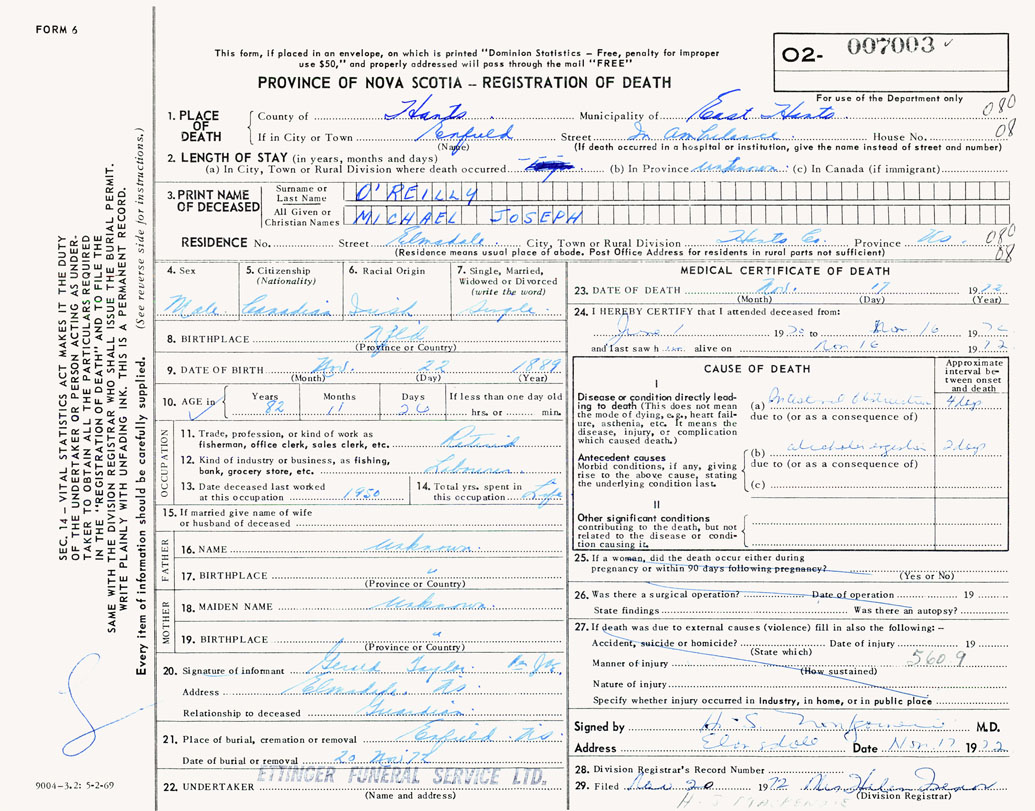 FORM 6
This form, if placed in an envelope, on which is printed "Dominion Statistics – Free, penalty for improper
use $50," and properly addressed will pass through the mail "FREE"
PROVINCE OF NOVA SCOTIA – REGISTRATION OF DEATH
O2- 007003
For use of the Department only
080
08
1. PLACE OF DEATH
County of Hants Municipality of East Hants
If in City or Town Enfield Street In Ambulance House No.
(Name) (If death occurred in a hospital or institution, give the name instead of street and number)
2. LENGTH OF STAY (in years, months and days)
(a) In City, Town or Rural Division where death occurred (b) In Province unknown (c) In Canada (if immigrant)
3. PRINT NAME OF DECEASED
Surname or Last Name O'REILLY
All Given or Christian Names MICHAEL JOSEPH
RESIDENCE No. Street Elmsdale City, Town or Rural Division Hants Co. Province N.S. 080
08
(Residence means usual place of abode. Post Office Address for residents in rural parts not sufficient)
4. Sex
Male
5. Citizenship
(Nationality)
Canadian
6. Racial Origin
Irish
7. Single, Married,
Widowed or Divorced
(write the word)
Single
8. BIRTHPLACE Nfld
(Province or Country)
9. DATE OF BIRTH Nov. 22 1889
(Month) (Day) (Year)
10. AGE in
Years 82
Months 11
Days 26
If less than one day old
hrs. or min.
OCCUPATION
11. Trade, profession, or kind of work as
fisherman, office clerk, sales clerk, etc. Retired
12. Kind of industry or business, as fishing,
bank, grocery store, etc. Labourer
13. Date deceased last worked
at this occupation 1950
14. Total yrs. spent in
this occupation Life
15. If married give name of wife
or husband of deceased
FATHER
16. NAME unknown
17. BIRTHPLACE "
(Province or Country)
MOTHER
18. MAIDEN NAME unknown
19. BIRTHPLACE "
(Province or Country)
20. Signature of informant Gerard Taylor
Address Elmsdale N.S.
Relationship to deceased Guardian
21. Place of burial, cremation or removal Enfield N.S.
Date of burial or removal 20 Nov 72
22. UNDERTAKER ETTINGER FUNERAL SERVICE LTD.
(Name and address)
MEDICAL CERTIFICATE OF DEATH
23. DATE OF DEATH Nov. 17 1972
(Month) (Day) (Year)
24. I HEREBY CERTIFY that I attended deceased from:
June 1 1970 to Nov 16 1972
and last saw him alive on Nov 16 1972
CAUSE OF DEATH
Approximate interval between onset and death
I
Disease or condition directly leading
to death (This does not mean
the mode of dying, e.g., heart failure,
asthenia, etc. It means the
disease, injury, or complication
which caused death.)
(a) Intestinal Obstruction 4 days
due to (or as a consequence of)
Antecedent causes
Morbid conditions, if any, giving
rise to the above cause, stating
the underlying condition last.
(b) alcoholic ingestion 2 days
due to (or as a consequence of)
(c)
II
Other significant conditions
contributing to the death, but not
related to the disease or condition
causing it.
25. If a woman, did the death occur either during
pregnancy or within 90 days following pregnancy?
(Yes or No)
26. Was there a surgical operation? Date of operation 19
State findings Was there an autopsy?
27. If death was due to external causes (violence) fill in also the following: –
Accident, suicide or homicide? Date of injury 19
(State which)
560.9
Manner of injury
(How sustained)
Nature of injury
Specify whether injury occurred in industry, in home, or in public place
Signed by H. S. M.D.
Address Elmsdale Date Nov. 17 1972
28. Division Registrar's Record Number
29. Filed Nov 20 1972 Mrs Helen
(Division Registrar)
H. S. MACKENZIE
SEC. 14 – VITAL STATISTICS ACT MAKES IT THE DUTY
OF THE UNDERTAKER OR PERSON ACTING AS UNDER-
TAKER TO OBTAIN ALL THE PARTICULARS REQUIRED
IN THE "REGISTRATION OF DEATH" AND TO FILE THE
SAME WITH THE DIVISION REGISTRAR WHO SHALL ISSUE THE BURIAL PERMIT.
WRITE PLAINLY WITH UNFADING INK. THIS IS A PERMANENT RECORD.
Every item of information should be carefully supplied. (See reverse side for instructions.)
9004-3.2: 5-2-69